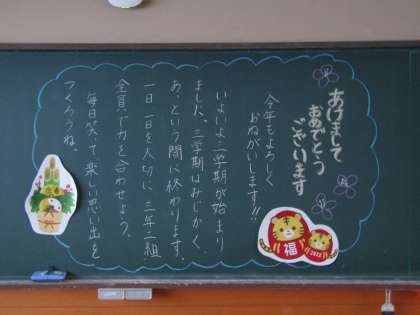 あけまして
おめでとう
ございます
今年もよろしく
おねがいします!!
いよいよ三学期が始まり
ました。三学期はみじかく、
あっという間に終わります。
一日一日を大切に、三年二組
全員で力を合わせよう。
毎日笑って楽しい思い出を
つくろうね。
福
2022